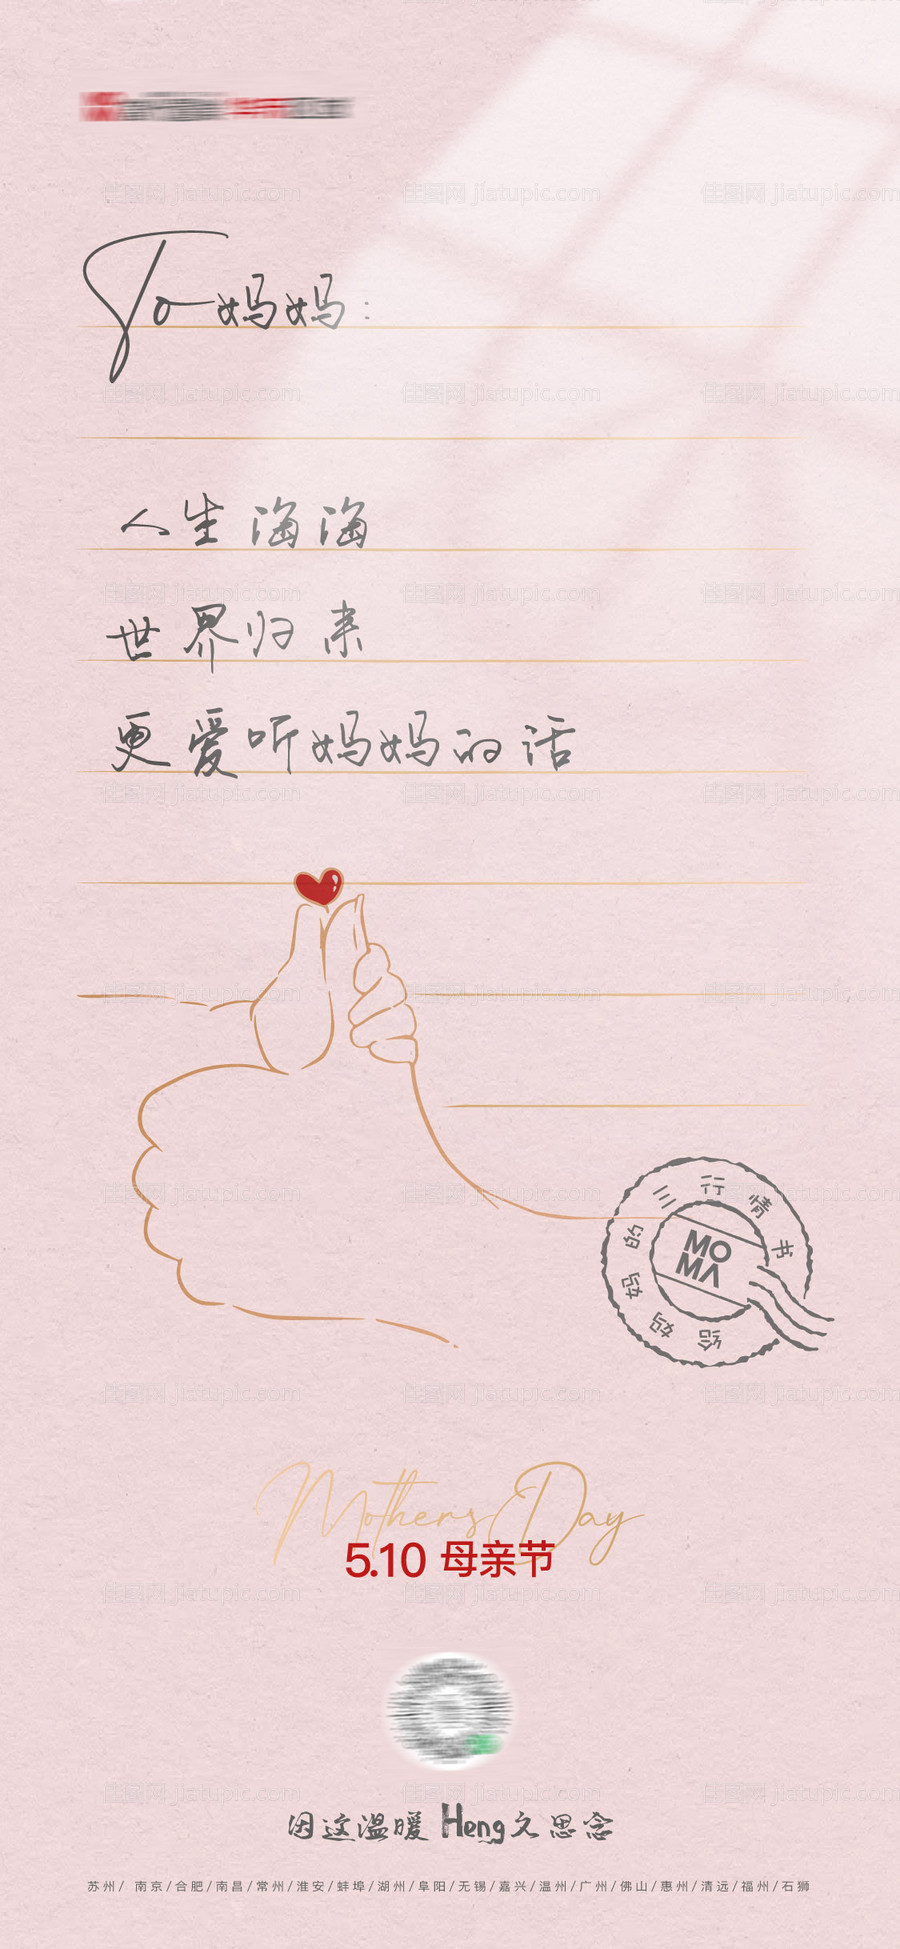 To 妈妈：
人生海海
世界归来
更爱听妈妈的话
给妈妈的三行情书
MOMA
Mothers Day
5.10 母亲节
因这温暖 Heng久思念
苏州/ 南京/合肥/南昌/常州/淮安/蚌埠/湖州/阜阳/无锡/嘉兴/温州/广州/佛山/惠州/清远/福州/石狮
佳图网 jiatupic.com